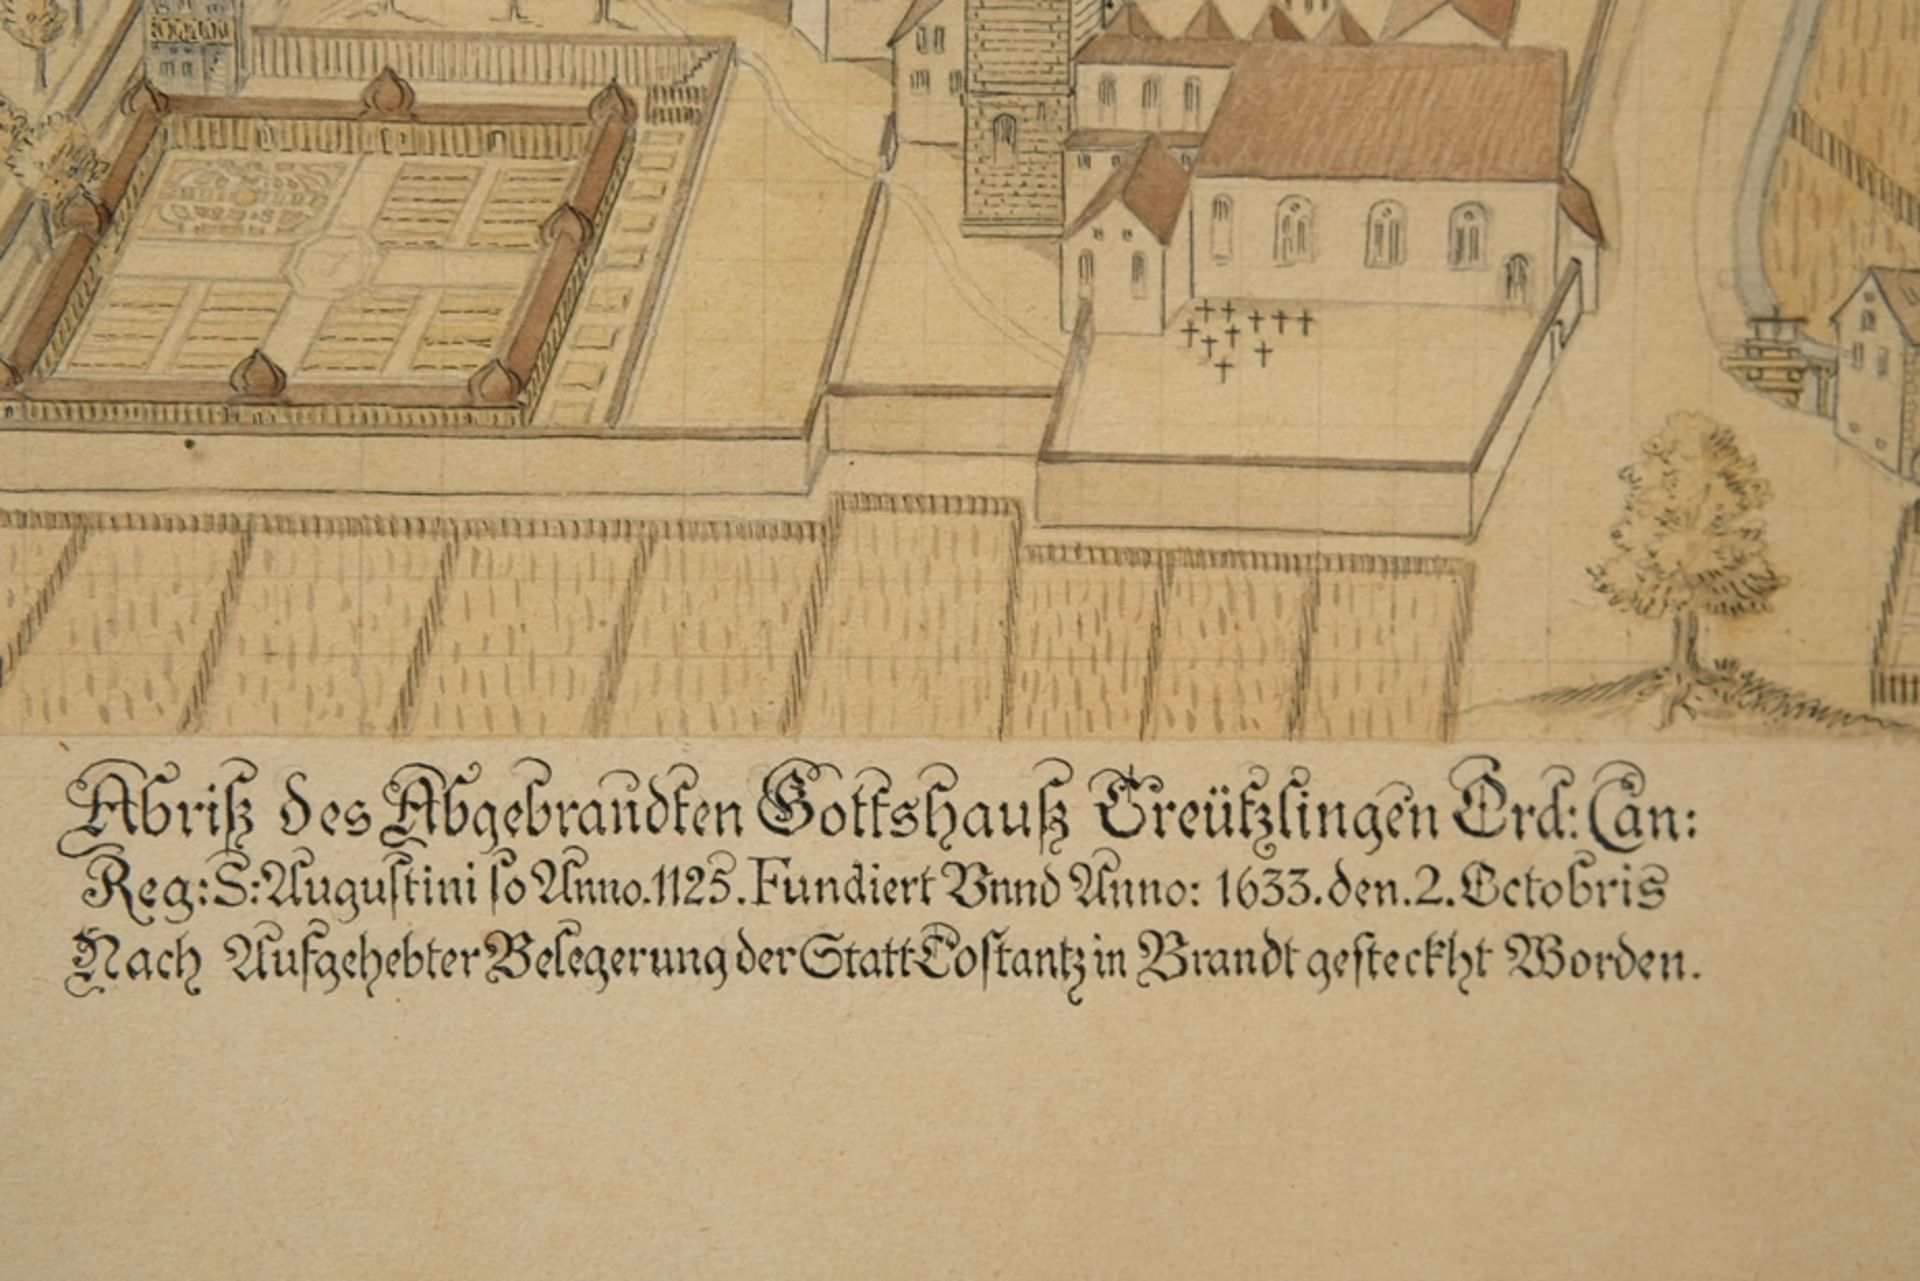 Abriß des Abgebrandten Gottshauß Creützlingen Ord: Can:
Reg: S: Augustini so Anno. 1125. Fundiert Vnnd Anno: 1633. den. 2. Octobris
Nach Aufgehebter Belegerung der Statt Costantz in Brandt gesteckht Worden.